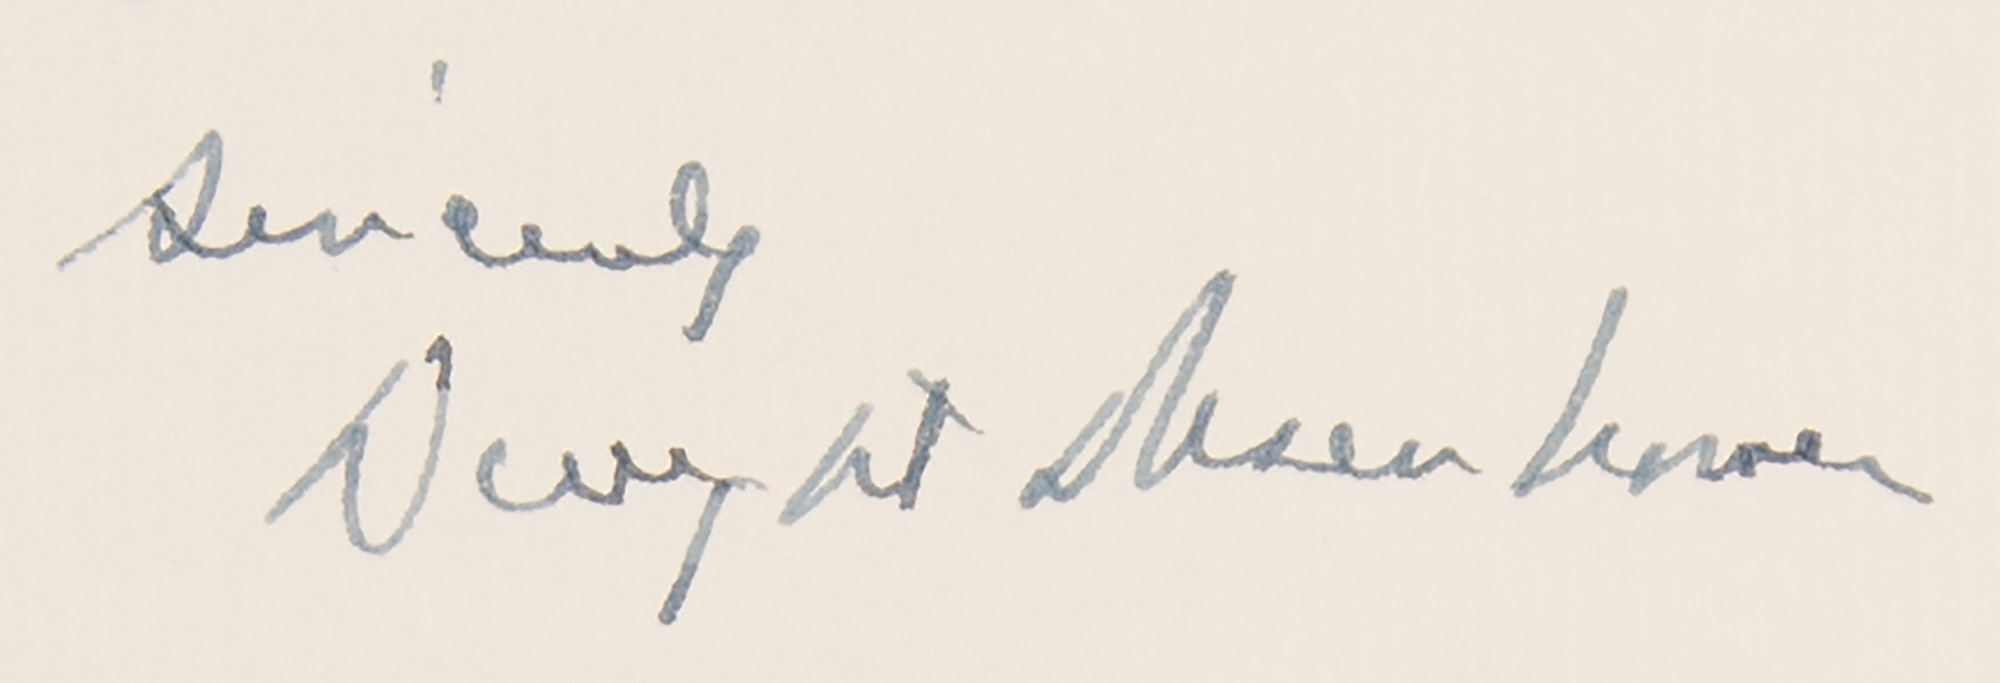 Sincerely
Dwight Eisenhower